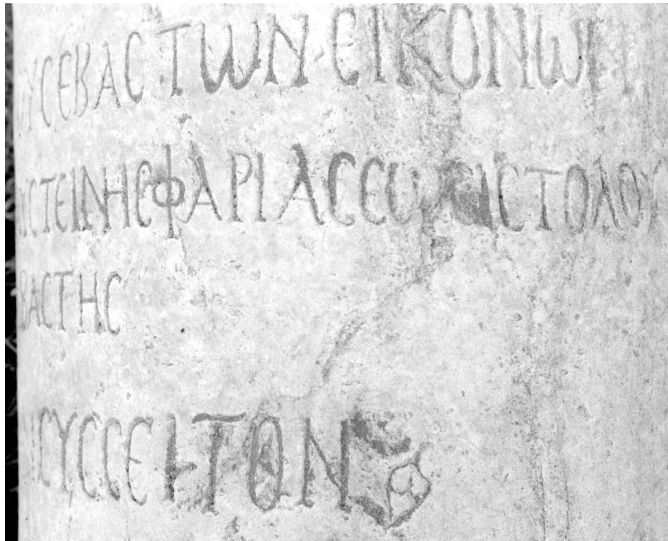 ΥϹΕΒΑϹΤΩΝΕΙΚΟΝΩΝ
ΥϹΤΕΙΝΗϹΦΑΡΙΑϹϹΩϹΙϹΤΟΛΟΥ
ΒΑϹΤΗϹ
ϹΥϹϹΕΙΤΟΝ